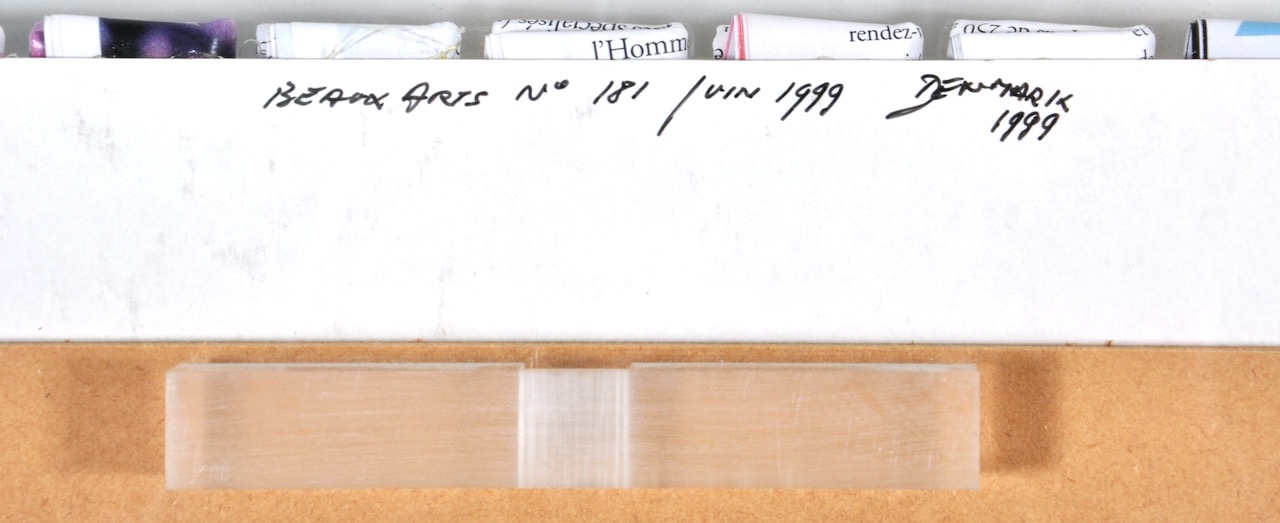 spécialisés
l'Homm
rendez-v
250
BEAUX ARTS N° 181 JUIN 1999 DENMARK
1999